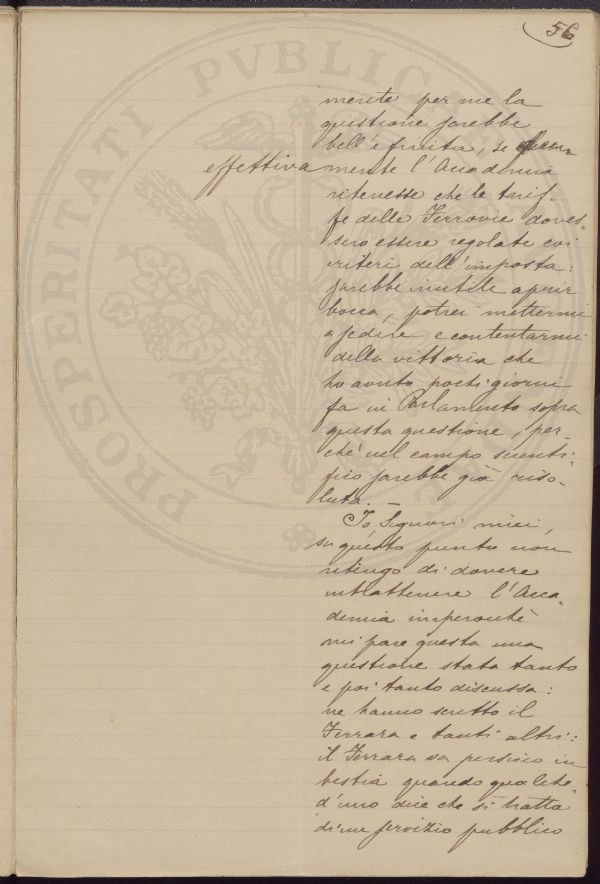 56
PROSPERITATI PVBLICAE
mente per me la
questione sarebbe
bell'e finita, se
effettiva mente l'Accademia
ritenesse che le tarif-
fe delle Ferrovie doves-
sero essere regolate coi
criteri dell'imposta:
sarebbe inutile aprir
bocca, potrei mettermi
a sedere e contentarmi
della vittoria che
ho avuto pochi giorni
fa in Parlamento sopra
questa questione, per-
ché nel campo scienti-
fico sarebbe già riso-
luta. —
Io Signori miei,
su questo punto non
ritengo di dovere
intrattenere l'Acca-
demia imperocchè
mi pare questa una
questione stata tanto
e poi tanto discussa:
ne hanno scritto il
Ferrara e tanti altri:
il Ferrara va persino in
bestia quando qualche-
d'uno dice che si tratta
di un servizio pubblico